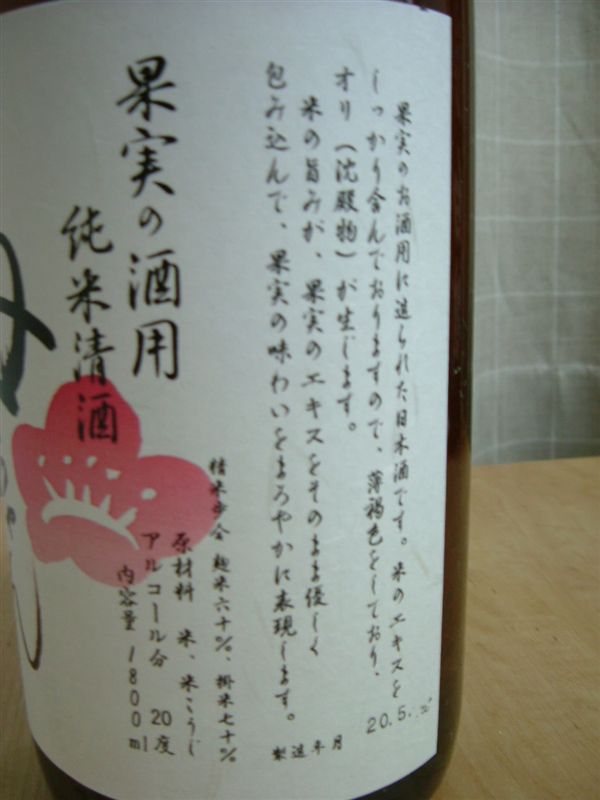 果実のお酒用に造られた日本酒です。米のエキスを
しっかり含んでおりますので、薄褐色をしており、
オリ（沈殿物）が生じます。
米の旨みが、果実のエキスをそのまま優しく
包み込んで、果実の味わいをまろやかに表現します。
製造年月
20.5.
果実の酒用
純米清酒
精米歩合 麹米六十%、掛米七十%
原材料 米、米こうじ
アルコール分 20度
内容量 1800ml